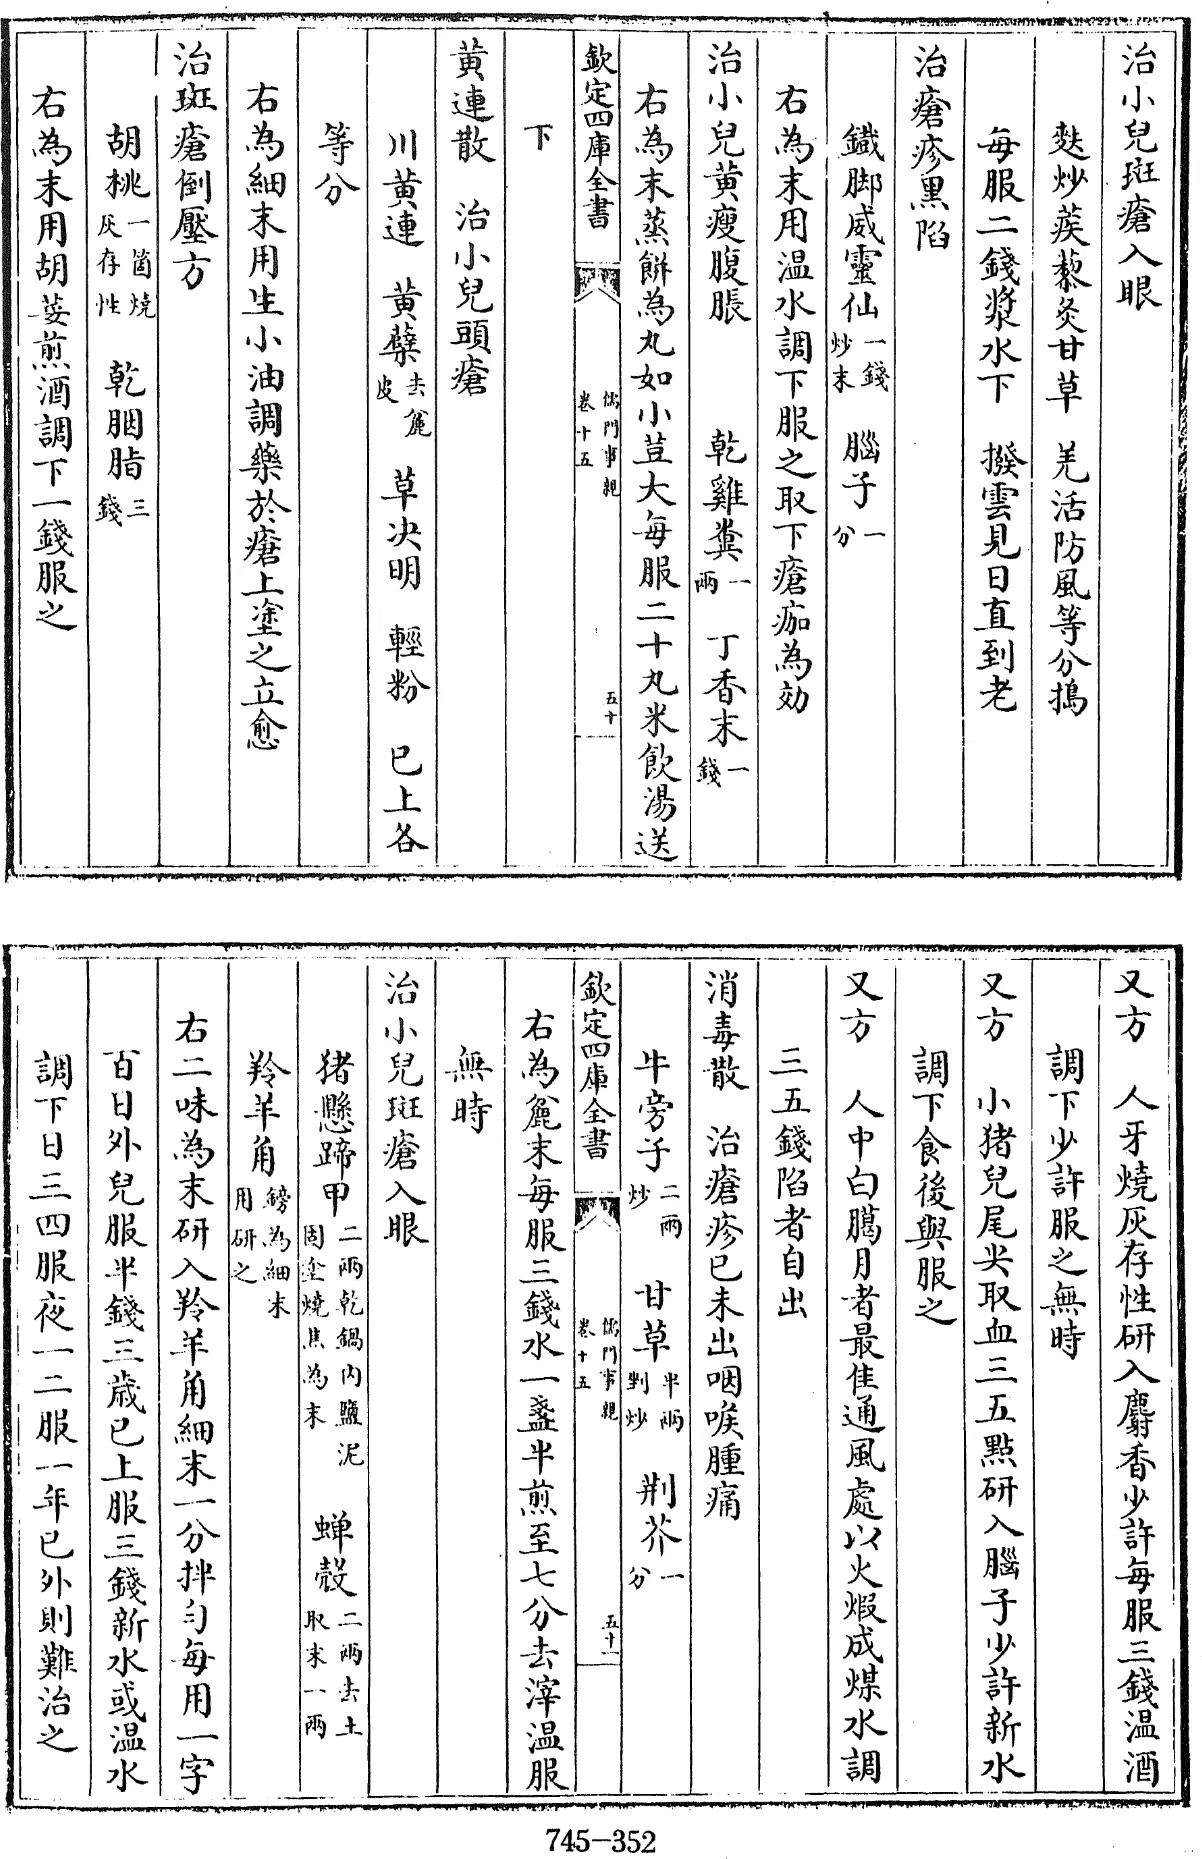 治小兒斑瘡入眼
麩炒蒺藜炙甘草　羌活防風等分搗
每服二錢漿水下　撥雲見日直到老
治瘡疹黑陷
鐵脚威靈仙一錢炒末　腦子一分
右為末用温水調下服之取下瘡痂為効
治小兒黄瘦腹脹　乾雞糞一兩　丁香末一錢
右為末蒸餅為丸如小荳大每服二十丸米飲湯送
欽定四庫全書　儒門事親卷十五　五十
下
黄連散　治小兒頭瘡
川黄連　黄蘗去麄皮　草决明　輕粉　已上各
等分
右為細末用生小油調藥於瘡上塗之立愈
治斑瘡倒壓方
胡桃一箇燒灰存性　乾胭脂三錢
右為末用胡荽煎酒調下一錢服之
又方　人牙燒灰存性研入麝香少許每服三錢温酒
調下少許服之無時
又方　小猪兒尾尖取血三五點研入腦子少許新水
調下食後與服之
又方　人中白臈月者最佳通風處以火煅成煤水調
三五錢陷者自出
消毒散　治瘡疹已未出咽喉腫痛
牛旁子二兩炒　甘草半兩剉炒　荆芥一分
欽定四庫全書　儒門事親卷十五　五十一
右為麄末每服三錢水一盞半煎至七分去滓温服
無時
治小兒斑瘡入眼
猪懸蹄甲二兩乾鍋内鹽泥固塗燒焦為末　蟬殻二兩去土取末一兩
羚羊角鎊為細末用研之
右二味為末研入羚羊角細末一分拌勻每用一字
百日外兒服半錢三歲已上服三錢新水或温水
調下日三四服夜一二服一年已外則難治之
745-352